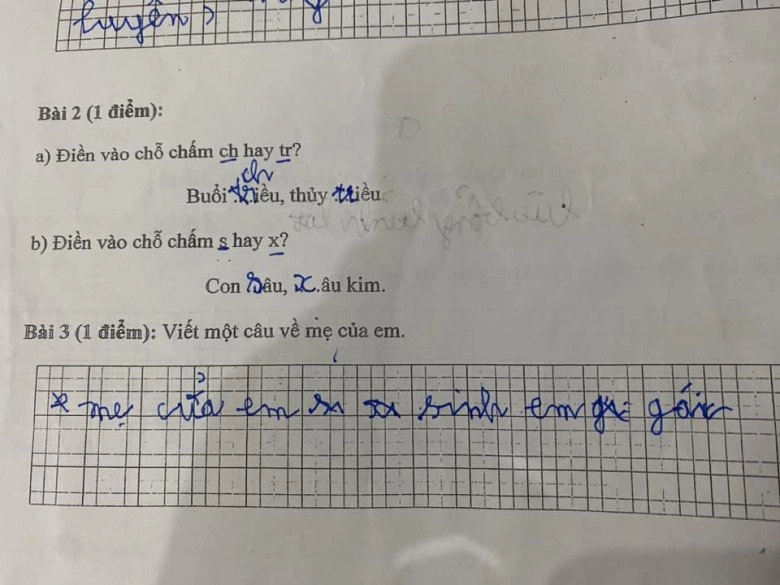 luyện
Bài 2 (1 điểm):
a) Điền vào chỗ chấm ch hay tr?
ch
Buổi triều, thủy triều
b) Điền vào chỗ chấm s hay x?
Con sâu, x.âu kim.
Bài 3 (1 điểm): Viết một câu về mẹ của em.
* mẹ của em sinh em gái